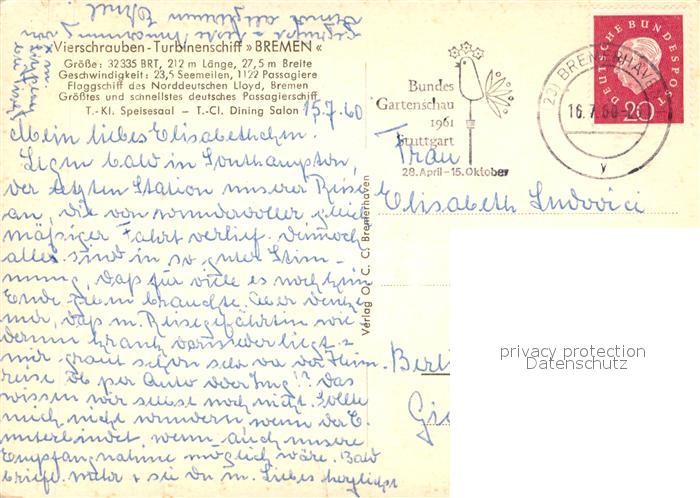 Vierschrauben-Turbinenschiff »BREMEN«
Größe: 32335 BRT, 212 m Länge, 27,5 m Breite
Geschwindigkeit: 23,5 Seemeilen, 1122 Passagiere
Flaggschiff des Norddeutschen Lloyd, Bremen
Größtes und schnellstes deutsches Passagierschiff
T.-Kl. Speisesaal - T.-Cl. Dining Salon
15.7.60
Mein liebes Elisabethchen.
bald in Southampton,
der letzten Station unserer Reise
an, die von wundervoller gleich
mäßiger Fahrt verlief. Dennoch
alles sind in so guter Stim-
mung, daß für viele es noch kein
Ende brauchte. Aber denke
mir, daß m. Reisegefährtin wie
derum krank darniederliegt. -
mir graut schon sehr vor der Heim-
reise ob per Auto oder Zug!? Das
wissen wir selbst noch nicht. Sollte
mich nicht wundern wenn der E.
unterbindet, wenn auch unsere
Empfangnahme möglich wäre. Bald
mehr + sei Du m. Liebes herzlichst
Verlag O. C. Cl. Bremerhaven
Bundes
Gartenschau
1961
Stuttgart
28. April - 15. Oktober
(23) BREMERHAVEN
16.7.60
v
DEUTSCHE BUNDESPOST
20
Frau
Elisabeth Ludovici
Berl
privacy protection
Datenschutz